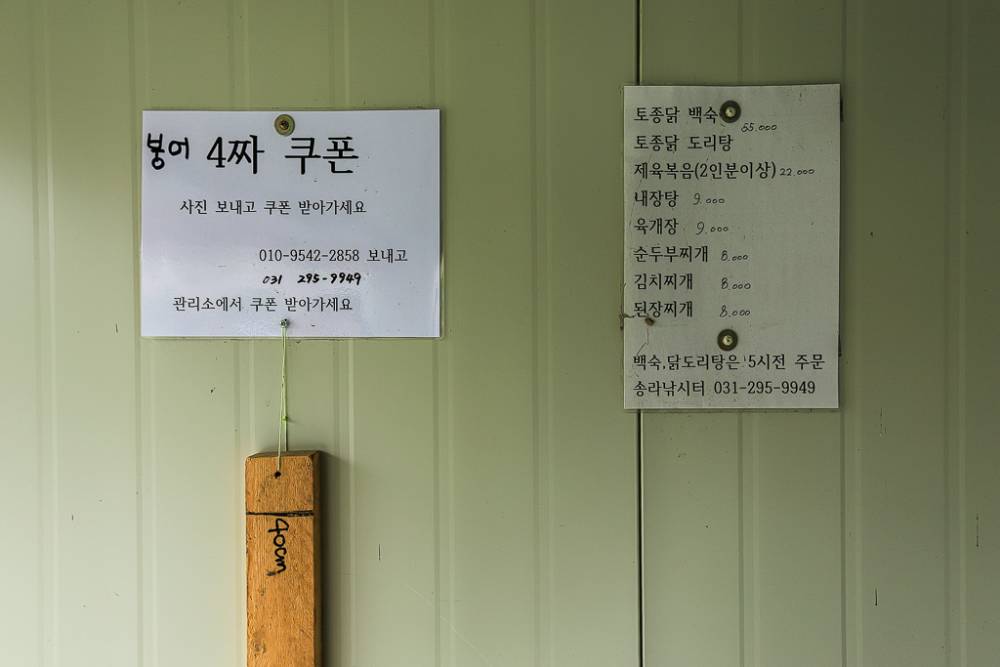 붕어 4짜 쿠폰
사진 보내고 쿠폰 받아가세요
010-9542-2858 보내고
031 295-9949
관리소에서 쿠폰 받아가세요
40cm
토종닭 백숙 55.000
토종닭 도리탕
제육복음(2인분이상) 22.000
내장탕 9.000
육개장 9.000
순두부찌개 8.000
김치찌개 8.000
된장찌개 8.000
백숙,닭도리탕은 5시전 주문
송라낚시터 031-295-9949